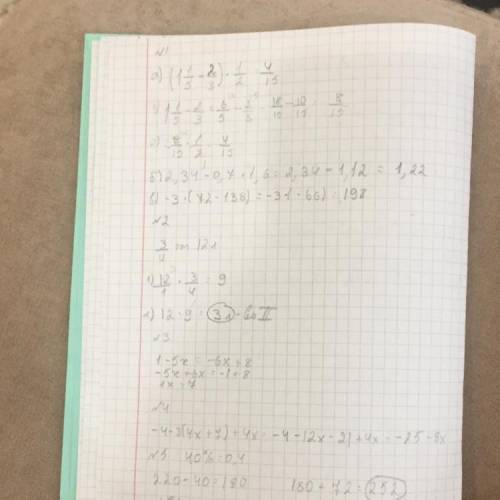 №1
а) (1 1/5 - 2/3) · 1/2 = 4/15
1) 1 1/5 - 2/3 = 6/5 - 2/3 = 18/15 - 10/15 = 8/15
2) 8/15 · 1/2 = 4/15
б) 2,34 - 0,7 · 1,6 = 2,34 - 1,12 = 1,22
в) -3 · (72 - 138) = -3 · (-66) = 198
№2
3/4 от 12л
1) 12/1 · 3/4 = 9
2) 12 - 9 = 3л - во II
№3
1 - 5x = -6x + 8
-5x + 6x = -1 + 8
1x = 7
№4
-4 - 3(4x + 7) + 4x = -4 - 12x - 21 + 4x = -25 - 8x
№5 40% = 0,4
220 - 40 = 180 180 + 72 = 252